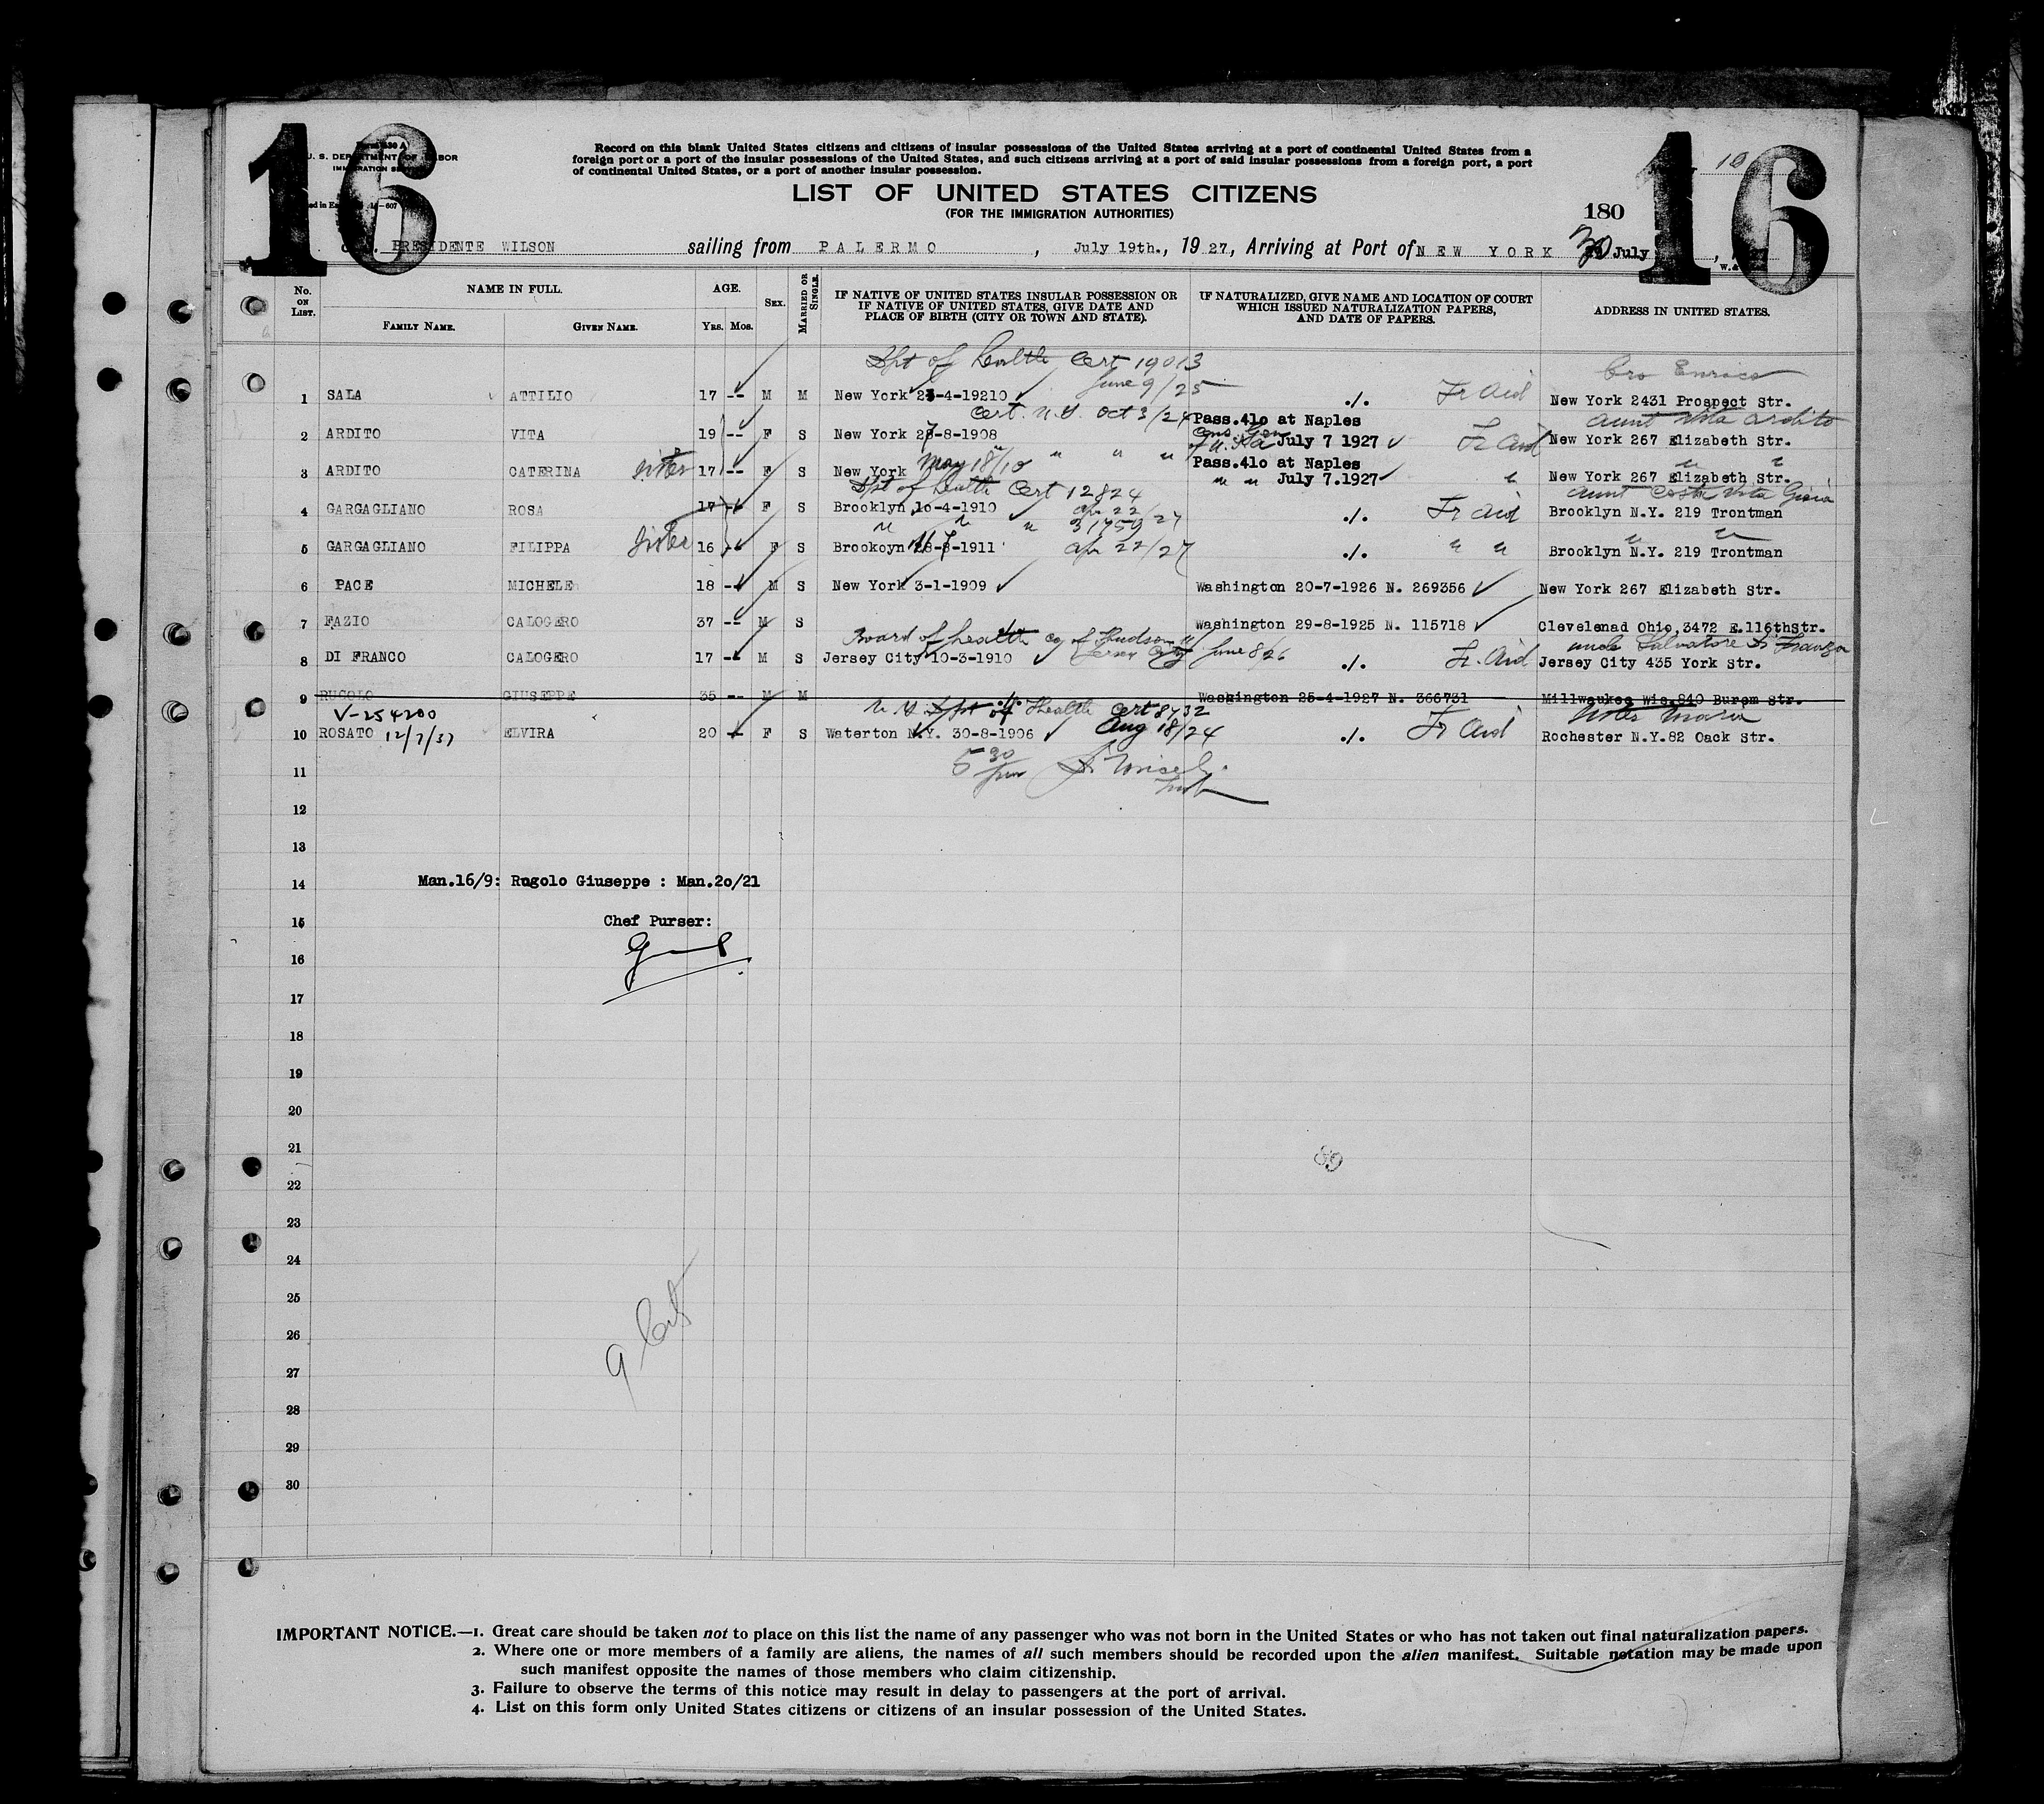 16
16
Form 630 A
U. S. DEPARTMENT OF LABOR
IMMIGRATION
Record on this blank United States citizens and citizens of insular possessions of the United States arriving at a port of continental United States from a
foreign port or a port of the insular possessions of the United States, and such citizens arriving at a port of said insular possessions from a foreign port, a port
of continental United States, or a port of another insular possession.
10
LIST OF UNITED STATES CITIZENS
(FOR THE IMMIGRATION AUTHORITIES)
180
PRESIDENTE WILSON sailing from PALERMO, July 19th., 1927, Arriving at Port of NEW YORK 30 July
No. ON LIST. NAME IN FULL. AGE. SEX. MARRIED OR SINGLE. IF NATIVE OF UNITED STATES INSULAR POSSESSION OR IF NATIVE OF UNITED STATES, GIVE DATE AND PLACE OF BIRTH (CITY OR TOWN AND STATE). IF NATURALIZED, GIVE NAME AND LOCATION OF COURT WHICH ISSUED NATURALIZATION PAPERS, AND DATE OF PAPERS. ADDRESS IN UNITED STATES.
FAMILY NAME. GIVEN NAME. YRS. MOS.
Dpt of health Cert 19013
June 9/25 Bro Enrico
1 SALA ATTILIO 17 -- M M New York 23-4-19210 ./. Tr Aid New York 2431 Prospect Str.
Cert. N.Y. Oct 3/24 Pass.41o at Naples aunt Vita Ardito
2 ARDITO VITA 19 -- F S New York 28-8-1908 Cons. Gen of U.S.A July 7 1927 Tr Aid New York 267 Elizabeth Str.
May 18/10 " " " Pass.41o at Naples " "
3 ARDITO CATERINA sister 17 -- F S New York " " July 7.1927 " New York 267 Elizabeth Str.
Dpt of health Cert 12824 aunt Costa Vita Gioia
4 GARGAGLIANO ROSA 17 -- F S Brooklyn 10-4-1910 Apr 22/27 ./. Tr Aid Brooklyn N.Y. 219 Trontman
" " " 31759
5 GARGAGLIANO FILIPPA sister 16 -- F S Brookoyn 28-8-1911 Apr 22/27 ./. " " Brooklyn N.Y. 219 Trontman
6 PACE MICHELE 18 -- M S New York 3-1-1909 Washington 20-7-1926 N. 269356 New York 267 Elizabeth Str.
7 FAZIO CALOGERO 37 -- M S Washington 29-8-1925 N. 115718 Clevelenad Ohio,3472 E.116thStr.
Board of health Co. of Hudson Jersey City June 8/26 uncle Salvatore Di Franco
8 DI FRANCO CALOGERO 17 -- M S Jersey City 10-3-1910 ./. Tr. Aid Jersey City 435 York Str.
9 RUGOLO GIUSEPPE 35 -- M M ./. Washington 25-4-1927 N. 366731 Millwaukee Wis.840 Burem Str.
V-254200 N.Y. Dpt of Health Cert 8732
10 ROSATO 12/7/37 ELVIRA 20 -- F S Waterton N.Y. 30-8-1906 Aug 18/24 ./. Tr Aid Rochester N.Y.82 Oack Str.
5 30
11
12
13
14 Man.16/9: Rugolo Giuseppe : Man.2o/21
15 Chef Purser:
16
17
18
19
20
21
89
22
23
24
25
26
27
28
29
30
IMPORTANT NOTICE.—1. Great care should be taken not to place on this list the name of any passenger who was not born in the United States or who has not taken out final naturalization papers.
2. Where one or more members of a family are aliens, the names of all such members should be recorded upon the alien manifest. Suitable notation may be made upon
such manifest opposite the names of those members who claim citizenship.
3. Failure to observe the terms of this notice may result in delay to passengers at the port of arrival.
4. List on this form only United States citizens or citizens of an insular possession of the United States.